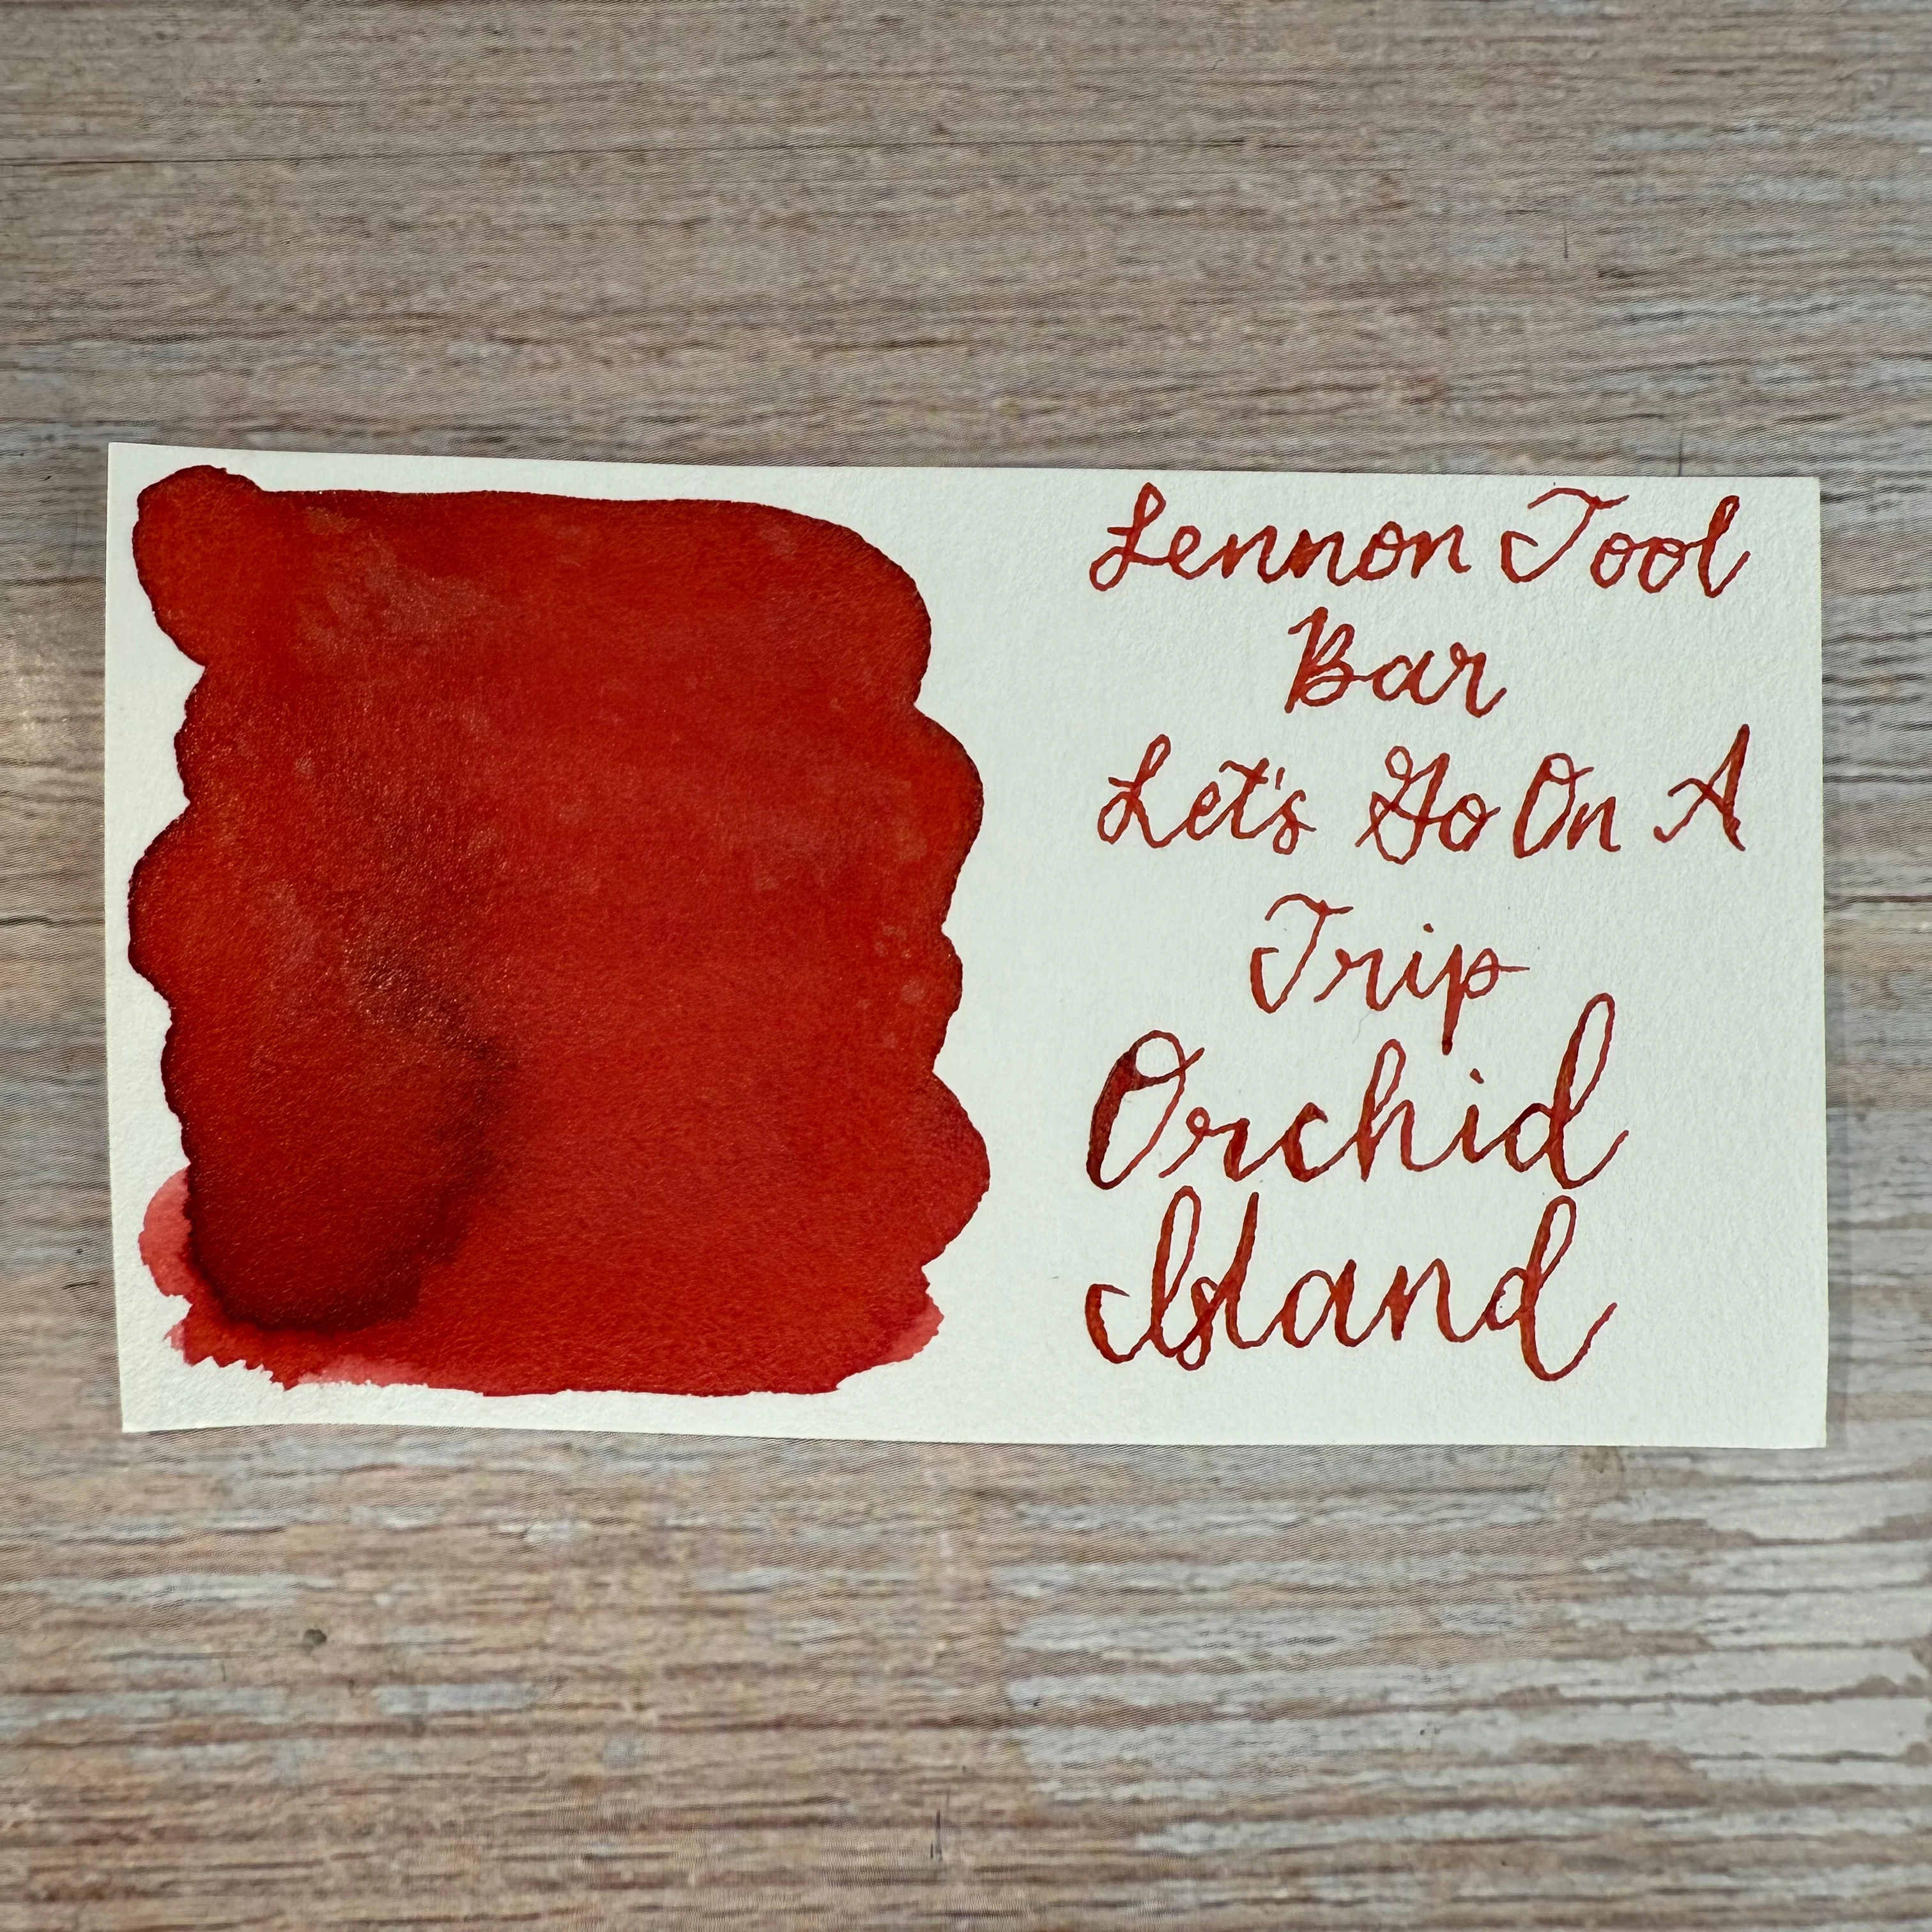 Lennon Tool
Bar
Let's Go On A
Trip
Orchid
Island